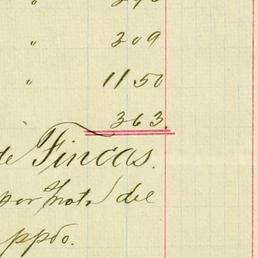 " 209
" 11 50
363.
de Fincas.
por
del
ppdo.